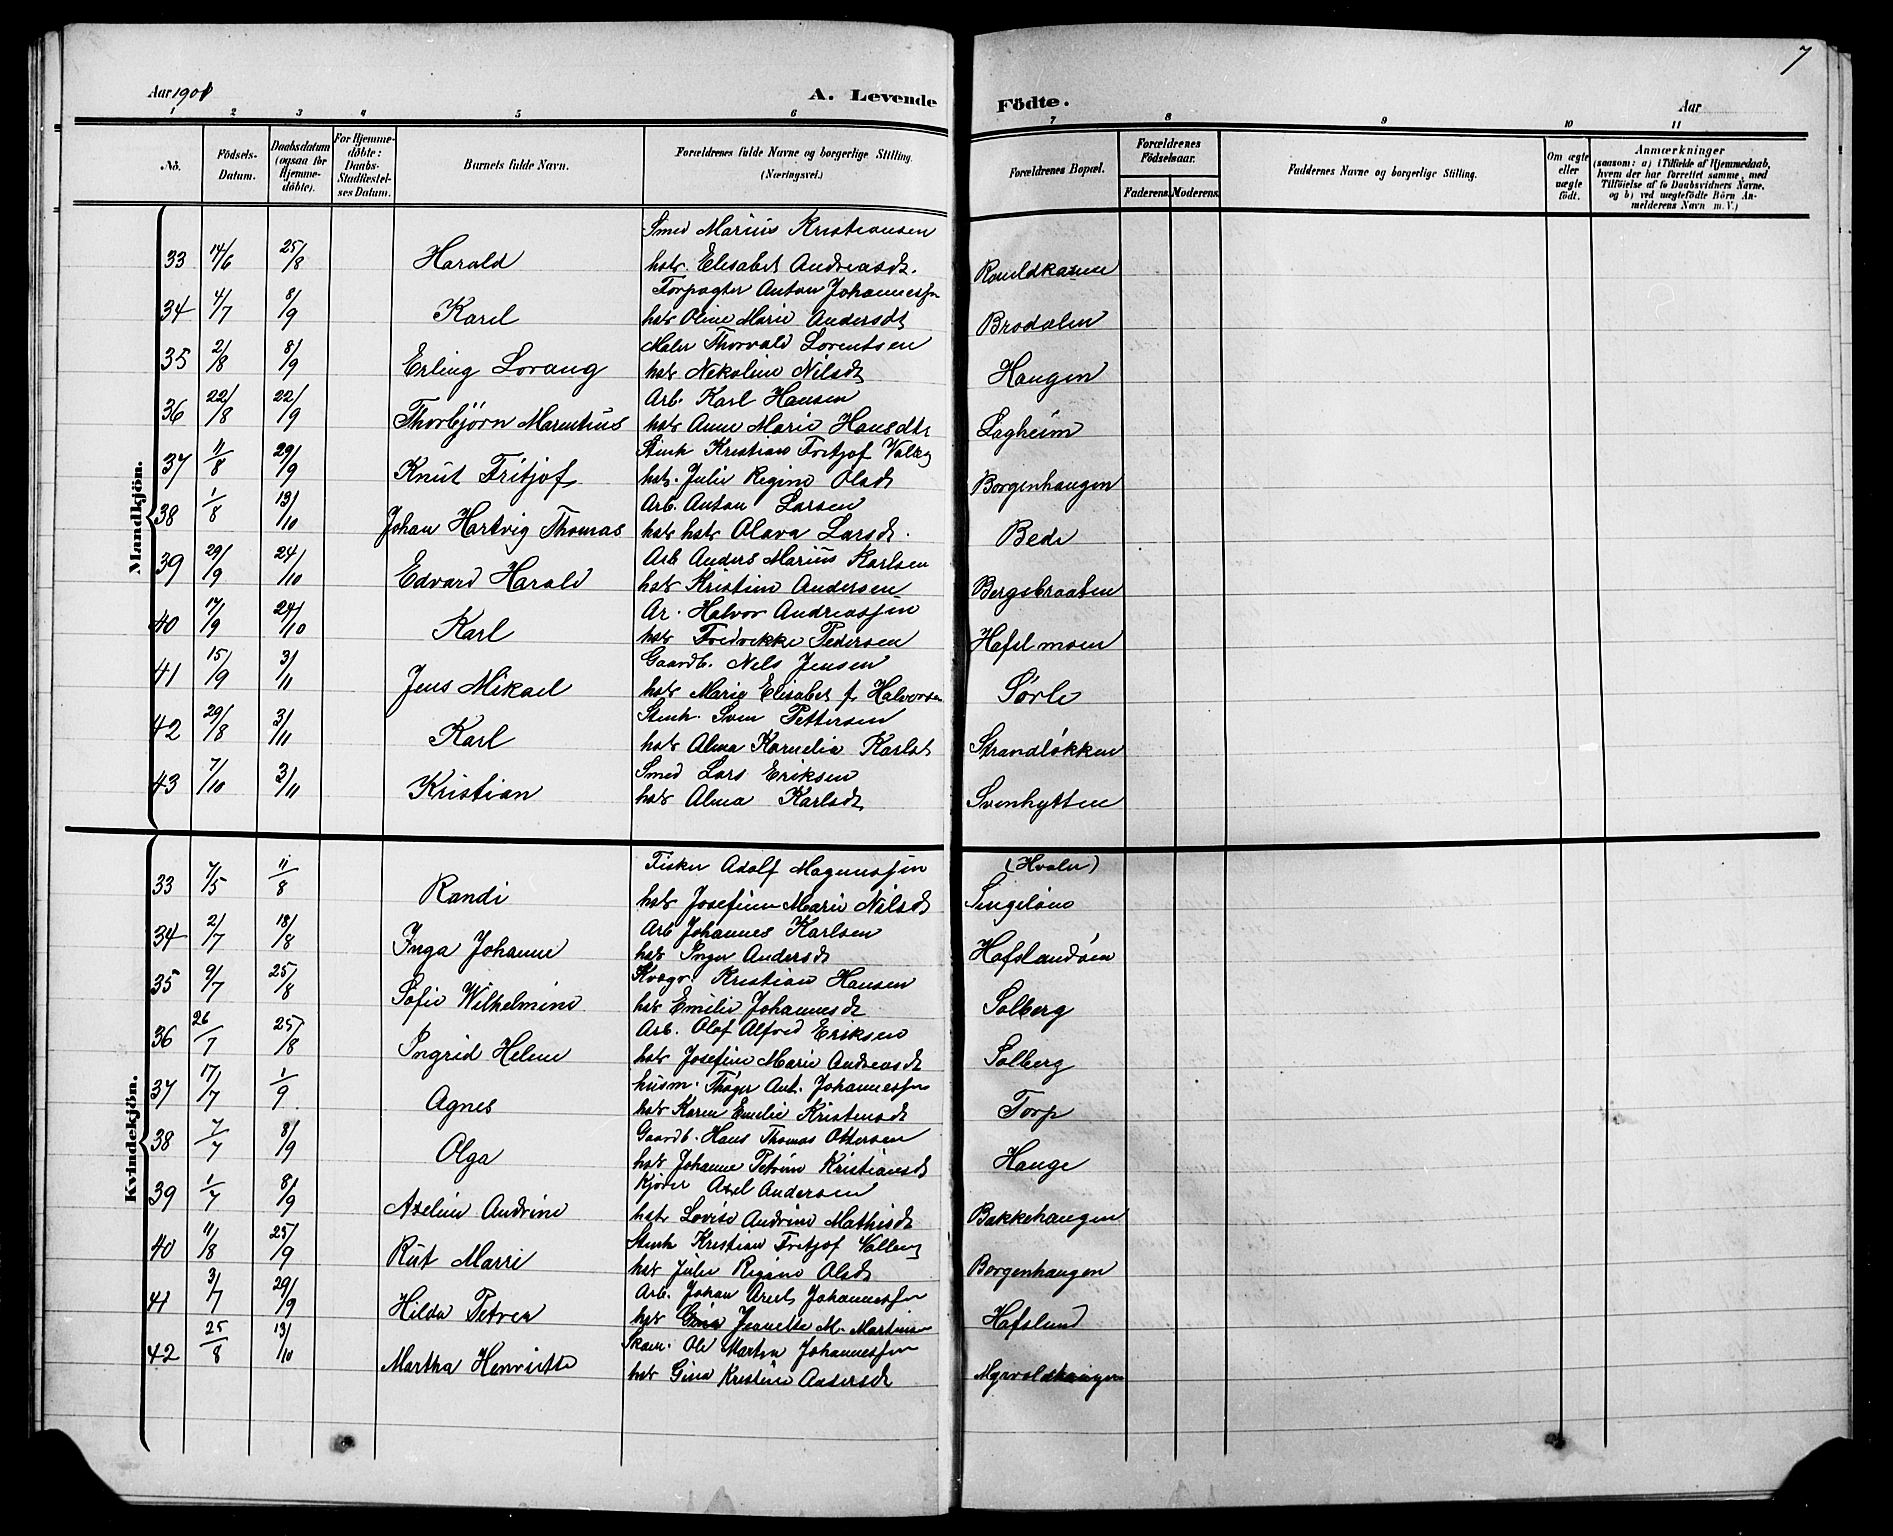 7
Aar 1901 A. Levende Födte. Aar
1 2 3 4 5 6 7 8 9 10 11
No.
Födsels-Datum.
Daabsdatum (ogsaa for Hjemmedöbte).
For Hjemmedöbte: Daabs-Stadfæstelses Datum.
Barnets fulde Navn.
Forældrenes fulde Navne og borgerlige Stilling. (Næringsvei.)
Forældrenes Bopæl.
Forældrenes Födselsaar.
Faderens. Moderens.
Faddernes Navne og borgerlige Stilling.
Om ægte eller uægte födt.
Anmærkninger (saasom: a) i Tilfælde af Hjemmedaab, hvem der har forrettet samme, med Tilföielse af to Daabsvidners Navne, og b) ved uægtefödte Börn Anmelderens Navn m. V.)
Mandkjön.
Smed Marius Kristiansen
33 14/6 25/8 Harald hstr. Elisabet Andreasdt.
Forpagter Anton Johannessen
34 4/7 8/9 Karl hstr Oline Marie Andersdt Brodalen
Maler Thorvald Lorentsen
35 2/8 8/9 Erling Lorang hstr Nekoline Nilsdt Haugen
Arb. Karl Hansen
36 22/8 22/9 Thorbjörn Marentius hstr Anne Marie Hansdtr Lagheim
Stenh Kristian Fritjof
37 11/8 29/9 Knut Fritjof hstr. Julie Regine Olsdt Borgenhaugen
Arb. Anton Larsen
38 1/8 13/10 Johan Hartvig Thomas hstr hstr Olava Larsdt. Bede
Arb Anders Marius Karlsen
39 29/9 24/10 Edvard Harald hstr Kristine Andersen Bergsbraaten
Ar. Halvor Andreassen
40 17/9 24/10 Karl hstr Fredrekke Pedersen Hafslmoen
Gaardb. Nels Jensen
41 15/9 3/11 Jens Mikael hstr Marie Elisabet f Halvorsen Sörle
Stenh. Sven Pettersen
42 29/8 3/11 Karl hstr Alma Kornelia Karlsdt Strandlökken
Smed Lars Eriksen
43 7/10 3/11 Kristian hstr Alma Karlsdt Svenhytten
Kvindekjön.
Fisker Adolf Magnussen (Hvaler)
33 7/5 11/8 Randi hstr Josefine Marie Nilsdt Singelöen
Arb Johannes Karlsen
34 2/7 18/8 Inga Johanne hstr Inger Andersdt Hafslundöen
Kristian Hansen
35 9/7 25/8 Sofie Wilhelmine hstr Emilie Johannesdt Solberg
Arb. Olaf Alfred Eriksen
36 26/7 25/8 Ingrid Helene hstr Josefine Marie Andreasdt Solberg
husm. Thöger Ant. Johannessen
37 17/7 1/9 Agnes hstr Karen Emelie Kristensdt Torp
Gaardb. Hans Thomas Ottersen
38 7/7 8/9 Olga hstr Johanne Petrine Kristiansdt Hauge
Kjörer Axel Andersen
39 1/7 8/9 Axeline Andrine hstr Lovise Andrine Mathisdt Bakkehaugen
Stenh Kristian Fritjof
40 11/8 25/9 Rut Marri hstr Julie Regine Olsdt Borgenhaugen
Arb. Johan Arent Johannessen
41 3/7 29/9 Hilda Petrea hstr Gina Jeanette M. Martinsen Hafslund
Ole Martin Johannessen
42 25/8 13/10 Martha Henriette hstr Gina Kristine Andersdt